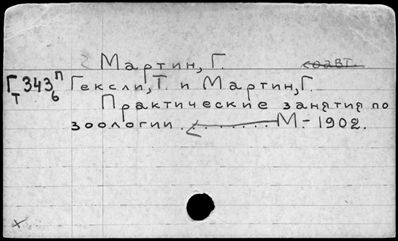 Мартин, Г. соавт.
Г 343 П Гексли, Т. и Мартин, Г.
Т б Практические занятия по
зоологии ........ М.-1902.